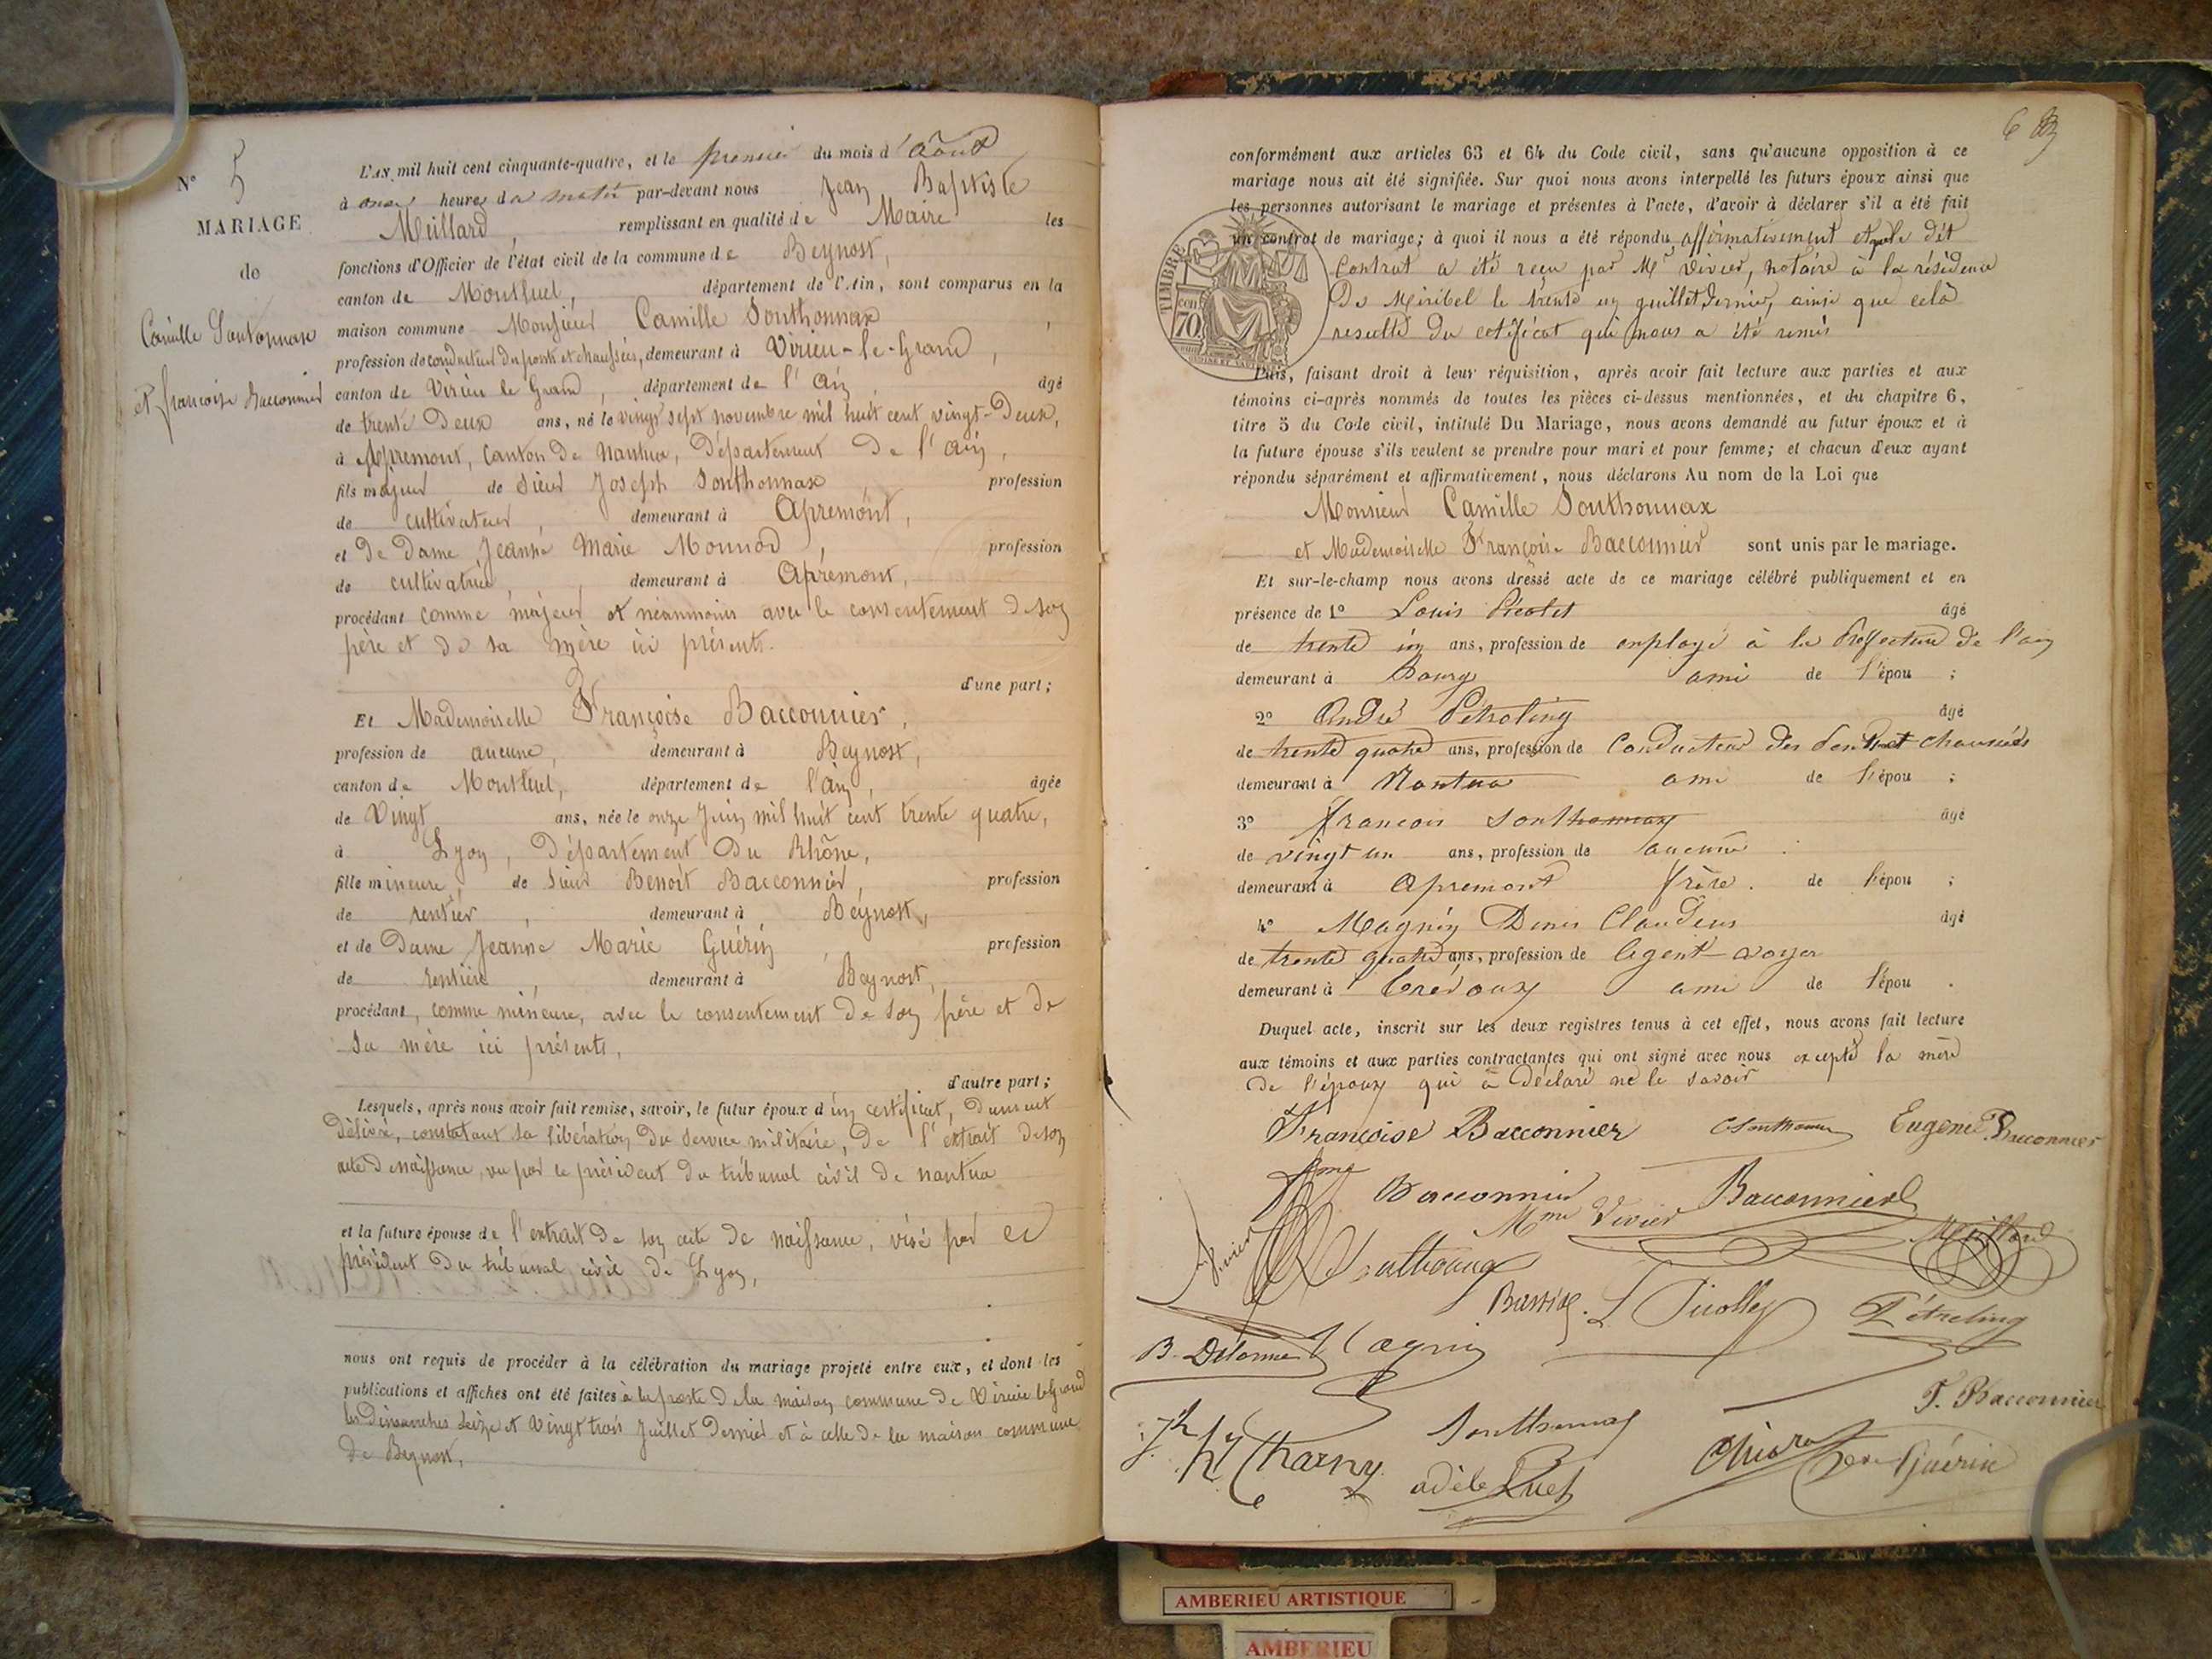 N° 5
MARIAGE
de
Camille Sontonnax
et françoise Bacconnier
L'AN mil huit cent cinquante-quatre, et le premier du mois d'Août
à onze heures du matin par-devant nous Jean Baptiste
Meillard, remplissant en qualité de Maire les
fonctions d'Officier de l'état civil de la commune de Beynost,
canton de Montluel, département de l'Ain, sont comparus en la
maison commune Monsieur Camille Sonthonnax,
profession de conducteur des ponts et chaussées, demeurant à Virieu-le-Grand,
canton de Virieu le Grand, département de l'Ain, âgé
de trente deux ans, né le vingt sept novembre mil huit cent vingt-deux,
à Apremont, canton de Nantua, Département de l'Ain,
fils majeur de Sieur Joseph Sonthonnax, profession
de cultivateur, demeurant à Apremont,
et de Dame Jeanne Marie Monnod, profession
de cultivatrice, demeurant à Apremont,
procédant comme majeur et néanmoins avec le consentement de son
père et de sa mère ici présents.
d'une part;
Et Mademoiselle Françoise Bacconnier,
profession de aucune, demeurant à Beynost,
canton de Montluel, département de l'Ain, âgée
de Vingt ans, née le onze Juin mil huit cent trente quatre,
à Lyon, Département du Rhône,
fille mineure, de Sieur Benoît Bacconnier, profession
de rentier, demeurant à Beynost,
et de Dame Jeanne Marie Guérin, profession
de rentière, demeurant à Beynost,
procédant, comme mineure, avec le consentement de son père et de
sa mère ici présents,
d'autre part;
Lesquels, après nous avoir fait remise, savoir, le futur époux d'un certificat, dument
délivré, constatant sa libération du service militaire, de l'extrait de son
acte de naissance, vu par le président du tribunal civil de nantua
et la future épouse de l'extrait de son acte de naissance, visé par le
président du tribunal civil de Lyon,
nous ont requis de procéder à la célébration du mariage projeté entre eux, et dont les
publications et affiches ont été faites à la porte de la maison commune de Virieu le grand
les Dimanches seize et vingt trois Juillet dernier et à celle de la maison commune
de Beynost,
6
conformément aux articles 63 et 64 du Code civil, sans qu'aucune opposition à ce
mariage nous ait été signifiée. Sur quoi nous avons interpellé les futurs époux ainsi que
les personnes autorisant le mariage et présentes à l'acte, d'avoir à déclarer s'il a été fait
un contrat de mariage; à quoi il nous a été répondu affirmativement et que le dit
Contrat a été reçu par Me Vivier, notaire à la résidence
De Miribel le trente un juillet dernier, ainsi que celà
resulte du certificat qui nous a été remis
TIMBRE
70
Puis, faisant droit à leur réquisition, après avoir fait lecture aux parties et aux
témoins ci-après nommés de toutes les pièces ci-dessus mentionnées, et du chapitre 6,
titre 5 du Code civil, intitulé Du Mariage, nous avons demandé au futur époux et à
la future épouse s'ils veulent se prendre pour mari et pour femme; et chacun d'eux ayant
répondu séparément et affirmativement, nous déclarons Au nom de la Loi que
Monsieur Camille Sonthonnax
et Mademoiselle Françoise Bacconnier sont unis par le mariage.
Et sur-le-champ nous avons dressé acte de ce mariage célébré publiquement et en
présence de 1° Louis Picolet âgé
de trente un ans, profession de employé à la Préfecture de l'ain
demeurant à Bourg ami de l'épou ;
2° André Pétreling âgé
de trente quatre ans, profession de Conducteur des Ponts et chaussées
demeurant à Nantua ami de l'épou ;
3° françois Sonthonnax âgé
de vingt un ans, profession de aucune
demeurant à Apremont frère de l'épou ;
4° Magnin Denis Claudius âgé
de trente quatre ans, profession de Agent-voyer
demeurant à Trévoux ami de l'épou .
Duquel acte, inscrit sur les deux registres tenus à cet effet, nous avons fait lecture
aux témoins et aux parties contractantes qui ont signé avec nous excepté la mère
de l'époux qui a déclaré ne le savoir
Françoise Bacconnier CSonthonnax Eugénie Bacconnier
Fme Bacconnier Mme Vivier Bacconnier
Vivier Sonthonnax Meillard
L Picollet Pétreling
B. Delorme Magnin
F. Bacconnier
Charny Sonthonnax
adèle Guérin
AMBERIEU ARTISTIQUE
AMBERIEU